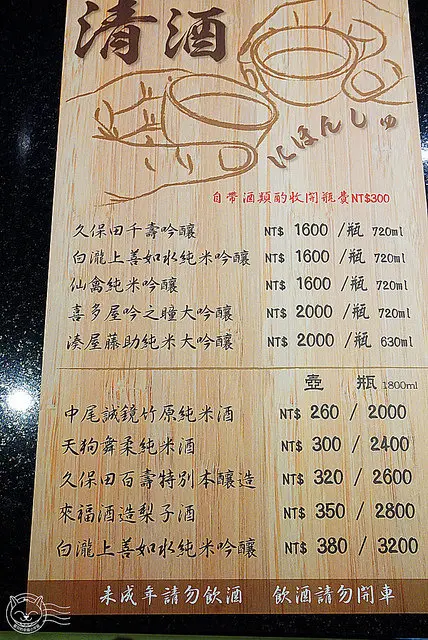 清酒
にほんしゅ
自帶酒類酌收開瓶費NT$300
久保田千壽吟釀 NT$ 1600 /瓶 720ml
白瀧上善如水純米吟釀 NT$ 1600 /瓶 720ml
仙禽純米吟釀 NT$ 1600 /瓶 720ml
喜多屋吟之瞳大吟釀 NT$ 2000 /瓶 720ml
湊屋藤助純米大吟釀 NT$ 2000 /瓶 630ml
壺 瓶 1800ml
中尾誠鏡竹原純米酒 NT$ 260 / 2000
天狗舞柔純米酒 NT$ 300 / 2400
久保田百壽特別本釀造 NT$ 320 / 2600
來福酒造梨子酒 NT$ 350 / 2800
白瀧上善如水純米吟釀 NT$ 380 / 3200
未成年請勿飲酒 飲酒請勿開車